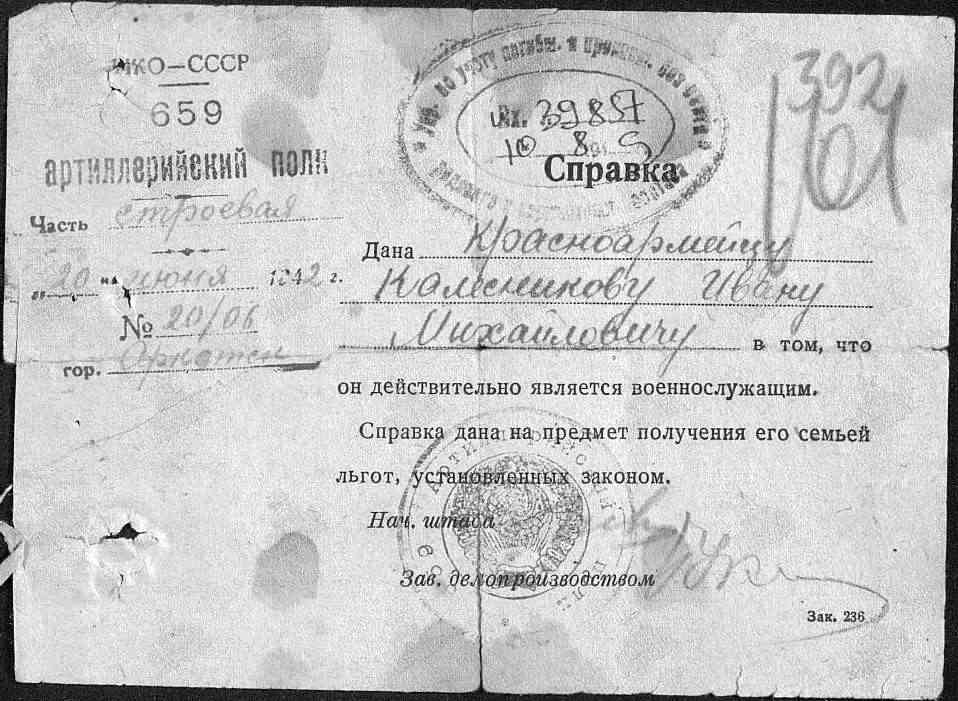 НКО—СССР
659
артиллерийский полк
Часть строевая
"20" на июня 1942 г.
№ 20/06
гор.
Упр. по учету погибш. и пропавш. без вести
Вх. 39857
10 8
392
Справка
Дана Красноармейцу
Калесникову Ивану
Михайловичу в том, что
он действительно является военнослужащим.
Справка дана на предмет получения его семьей
льгот, установленных законом.
Нач. штаба
Зав. делопроизводством
Зак. 236